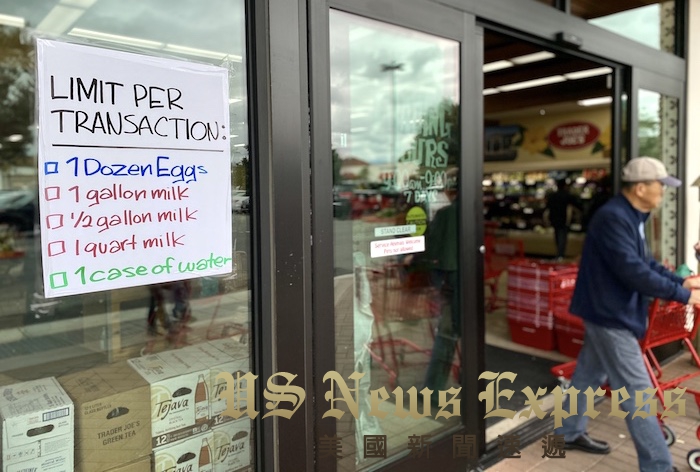 LIMIT PER
TRANSACTION:
1 Dozen Eggs
1 gallon milk
1/2 gallon milk
1 quart milk
1 case of water
TRADER JOE'S
STAND CLEAR
7 DAYS
Tejava
12
TRADER JOE'S
GREEN TEA
Tejava
US News Express
美國新聞速遞